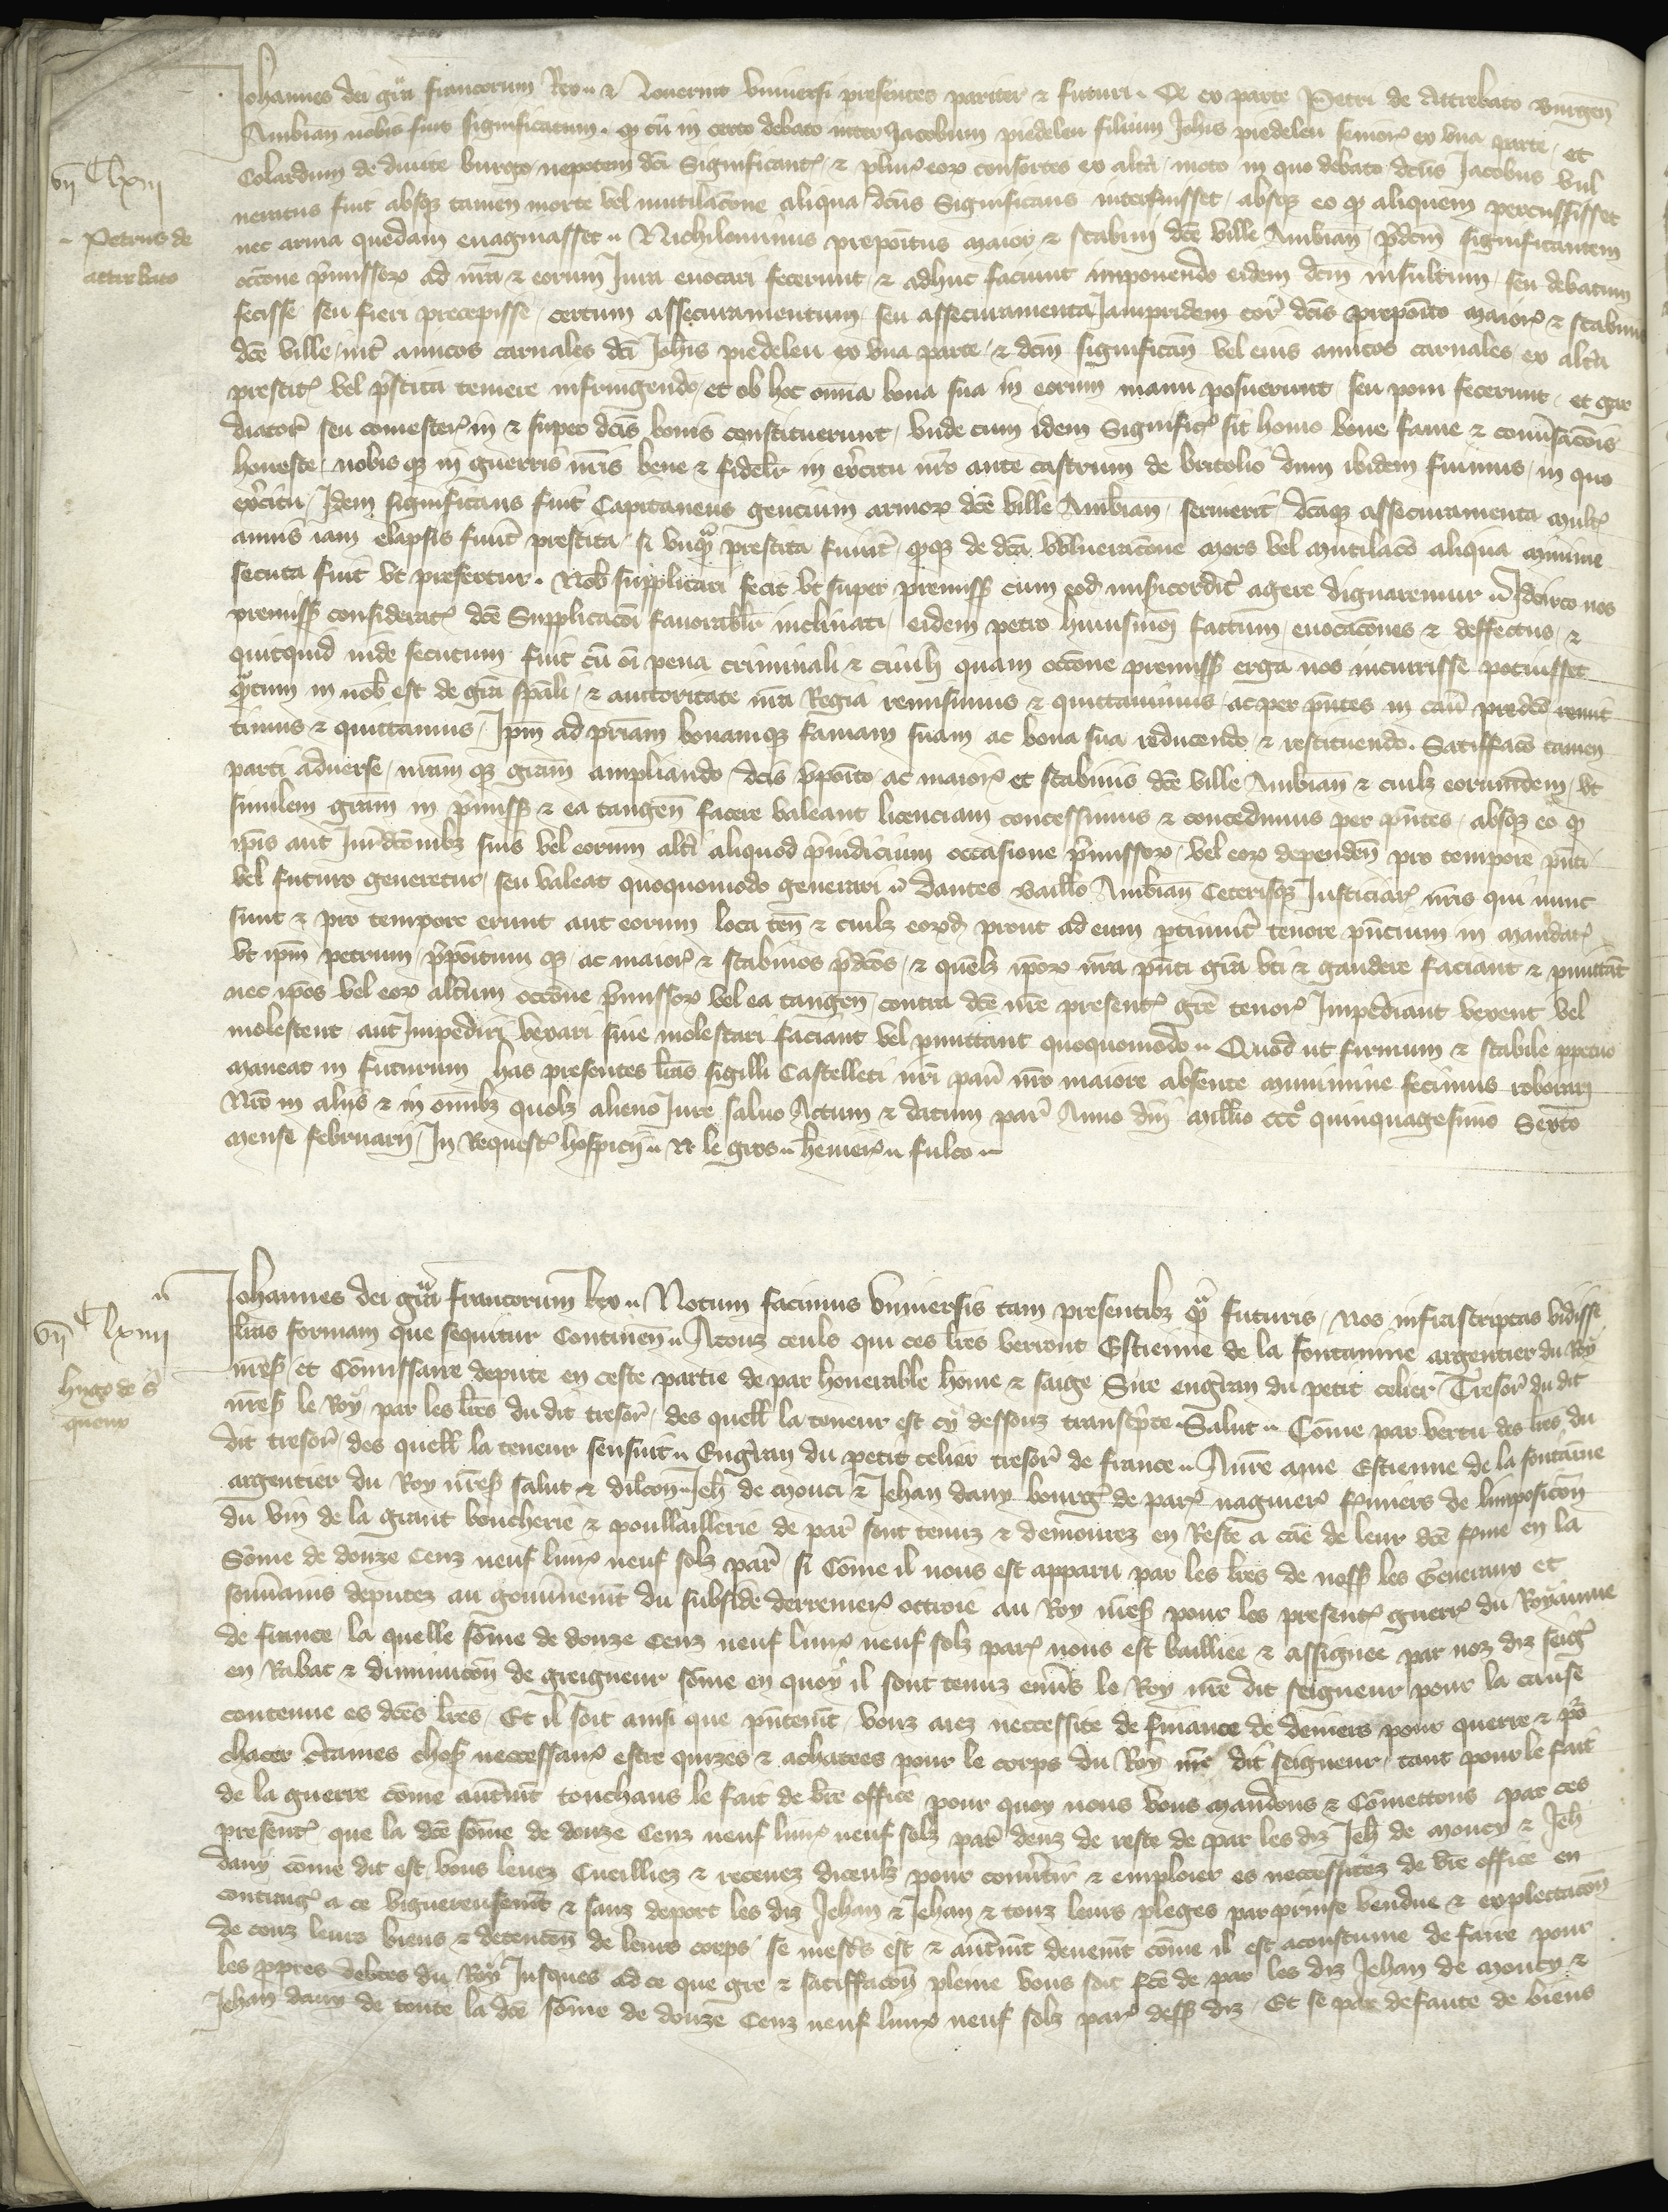 Johannes dei gr̃a francorum Rex ⁊ Noverint universi presentes pariter ⁊ futuri. Qd ex parte Petri de Attrebato burgen̄
Ambian̄ nobis fuit significatum. qꝫ cū in certo debato inter Jacobum piedeleu filium Joh̄is piedeleu senior̄ ex una parte, et
Colardum de divite burgo nepotem dc̄i Significant̄ ⁊ plur̄ eoꝝ consortes ex alt̄a, moto in quo debato dc̄us Jacobus vul
neratus fuit absqꝫ tamen morte vel mutilac̄one aliqua dc̄us Significans interfuisset, absqꝫ eo qꝫ aliquem percussisset
nec arma quedam evaginasset Nichilominus prepoītus maior ⁊ scabini dc̄e ville Ambian̄ p̄dc̄m significantem
occōne p̄missoꝝ ad n̄ra ⁊ eorum Jura evocari fecerunt ⁊ adhuc faciunt imponendo eidem dc̄m insultum seu debatum
fecisse seu fieri precepisse, certum assecuramentum seu assecuramenta Jampridem cor̄ dc̄is preposito maior̄ ⁊ scabinis
dc̄e ville int̄ amicos carnales dc̄i Joh̄is piedeleu ex una parte ⁊ dc̄m significan̄ vel eius amicos carnales ex alt̄a
prestit̄ vel p̄stita temere infringendo, et ob hoc om̄ia bona sua in eorum manu posuerunt seu poni fecerunt, et gar
diator̄ seu comestor̄ in ⁊ super dc̄is bonis constituerunt, Unde cum idem Signific̄ sit homo bone fame ⁊ conv̄sac̄ois
honeste nobis qꝫ in guerris n̄ris bene ⁊ fidel̄r in ex̄citu n̄ro ante castrum de britolio dum ibidem fuimus, in quo
ex̄citu Idem significans fuit Capitaneus gencium armoꝝ dc̄e ville Ambian̄ servierit dc̄aqꝫ assecuramenta mult̄
annis iam elapsis fuer̄t prestita si unqᵃꝫ prestita fuer̄t, qꝫqꝫ de dc̄a vulnerac̄one mors vel mutilac̄o aliqua minime
secuta fuit ut prefertur. Nob̄ supplicari fecit ut super premiss̄ cum eod̄ misericordit̄ agere dignaremur Idcirco nos
premiss̄ considerat̄ dc̄e Supplicac̄oi favorabil̄r inclinati eidem petro huiusmōi factum, evocac̄ones ⁊ deffectus, ⁊
quicquid inde secutum fuit cū oī pena criminali ⁊ civili quam occōne premiss̄ erga nos incurrisse potuisset
q̄ntum in nob̄ est de gr̄a sp̄ali, ⁊ auctoritate n̄ra Regia remisimus ⁊ quittavimus, ac per p̄ntes in casū predc̄o remit
timus ⁊ quittamus, Ip̄m ad pr̄iam bonamqꝫ famam suam ac bona sua reducendo ⁊ restituendo. Satisfac̄o tamen
parti adverse, n̄ram qꝫ gr̄am ampliando dc̄is p̄poīto ac maior̄ et scabinis dc̄e ville Ambian̄ ⁊ cuilꝫ eorumdem, ut
similem gr̄am in p̄miss̄ ⁊ ea tangen̄ facere valeant licenciam concessimus ⁊ concedimus per p̄ntes, absqꝫ eo qꝫ
ip̄is aut Jurīdc̄ōibꝫ suis vel eorum alt̄i aliquod p̄iudicium occasione p̄missoꝝ, vel eoꝝ dependen̄ pro tempore p̄nti
vel futuro generetur, seu valeat quoquomodo generari dantes Baill̄o Ambian̄ Ceterisqꝫ Justiciar̄ n̄ris qui nunc
sunt ⁊ pro tempore erunt aut eorum loca ten̄ ⁊ cuilꝫ eoꝝd̄ prout ad eum ꝑtinuit̄ tenore p̄ncium in mandat̄
ut ip̄m petrum, p̄poītum qꝫ ac maior̄ ⁊ scabinos p̄dc̄os, ⁊ quēlꝫ ip̄oꝝ n̄ra p̄nti gr̄a uti ⁊ gaudere faciant ⁊ ꝑmittāt
nec ip̄os vel eoꝝ alt̄um occōne p̄missoꝝ vel ea tangen̄, contra dc̄e n̄re present̄ gr̄e tenor̄ Impediant vexent vel
molestent aut Impediri vexari sive molestari faciant vel ꝑmittant quoquomodo Quod ut firmum ⁊ stabile ꝑpetuo
maneat in futurum has presentes l̄ras sigilli Castelleti n̄ri par̄ n̄ro maiore absente munimine fecimus roborari
N̄ro in aliis ⁊ in om̄ibꝫ quolꝫ alieno Jure salvo Actum ⁊ datum par̄ Anno dn̄i mill̄io cccᵒ quinquagesimo Sexto
mense februarii, In Request̄ hospicii ⁊ N le gros henier̄ fulco

vii Clxiii
Petrus de
attrebato

Johannes dei gr̄a francorum Rex Notum facimus Universis tam presentibꝫ qᵃꝫ futuris, Nos infrascriptas vidisse
l̄ras formam que sequitur Continen̄ Atouz ceuls qui ces l̄res verront Estienne de la fontainne argentier du Roy
n̄res̄ et Com̄issaire depute en ceste partie de par honerable home ⁊ saige Sire engr̄an du petit celier Tresor̄ du dit
n̄res̄ le Roy, par les l̄res du dit tresor̄, des quell̄ la teneur est cy dessouz transcp̄te Salut Com̄e par vertu des l̄res du
dit tresor̄ des quell̄ la teneur sensuit Engr̄an du petit celier tresor̄ de france An̄re ame Estienne de la fontain̄e
argentier du Roy n̄res̄ salut ⁊ dilc̄on Jeh̄ de monci ⁊ Jehan dany bourḡ de par̄ naguier̄ f̄miers de limposic̄on
du vin de la grant boucherie ⁊ poullaillerie de par̄ sont tenuz ⁊ demourez en Reste a cāe de leur dc̄e f̄me en la
Som̄e de douze Cenz neuf livr̄ neuf solz par̄ si Com̄e il nous est apparu par les l̄res de noss̄ les Gēneraux et
souv̄ains deputez au gouv̄nemēt du subside derrenier̄ ottroie au Roy n̄res̄ pour les present̄ guerr̄ du Royaume
de france la quelle som̄e de douze Cenz neuf livr̄ neuf solz par̄ nous est bailliee ⁊ assignee par noz diz seiḡ
en Rabat ⁊ diminuc̄on de greigneur som̄e en quoy il sont tenuz env̄s le Roy n̄re dit seigneur pour la cause
contenue es dc̄es l̄res, Et il soit ainsi que p̄ntemēt vouz aiez neccessite de finance de deniers pour querre ⁊ p̄o
chacer c̄taines chos̄ neccessair̄ estre quizes ⁊ achatees pour le corps du Roy n̄re dit seigneur, tant pour le fait
de la guerre com̄e autmēt touchans le fait de v̄re office pour quoy nous vous mandons ⁊ Com̄ettons par ces
present̄ que la dc̄e som̄e de douze Cenz neuf livr̄ neuf solz par̄ deuz de reste de par les diz Jeh̄ de moncy ⁊ Jeh̄
dany com̄e dit est vous levez Cueilliez ⁊ recevez diceulz pour conv̄tir ⁊ emploier es neccessitez de v̄re office en
contraiḡ a ce viguereusemēt ⁊ sanz deport les diz Jehan ⁊ Jehan ⁊ touz leurs pleges par prinse vendue ⁊ explectac̄on
de touz leurs biens ⁊ detenc̄on de leurs corps, se mest̄s est ⁊ autmēt deuemēt com̄e il est acoustume de faire pour
les ꝓpres debtes du Roy Jusques ad ce que gre ⁊ satiffac̄on pleine vous soit fc̄e de par les diz Jehan de moncy ⁊
Jehan dany de toute la dc̄e som̄e de douze Cenz neuf livr̄ neuf solz par̄ dess̄ diz, Et se par defaute de biens

vii Clxiiii
Hugo de S̄
queux